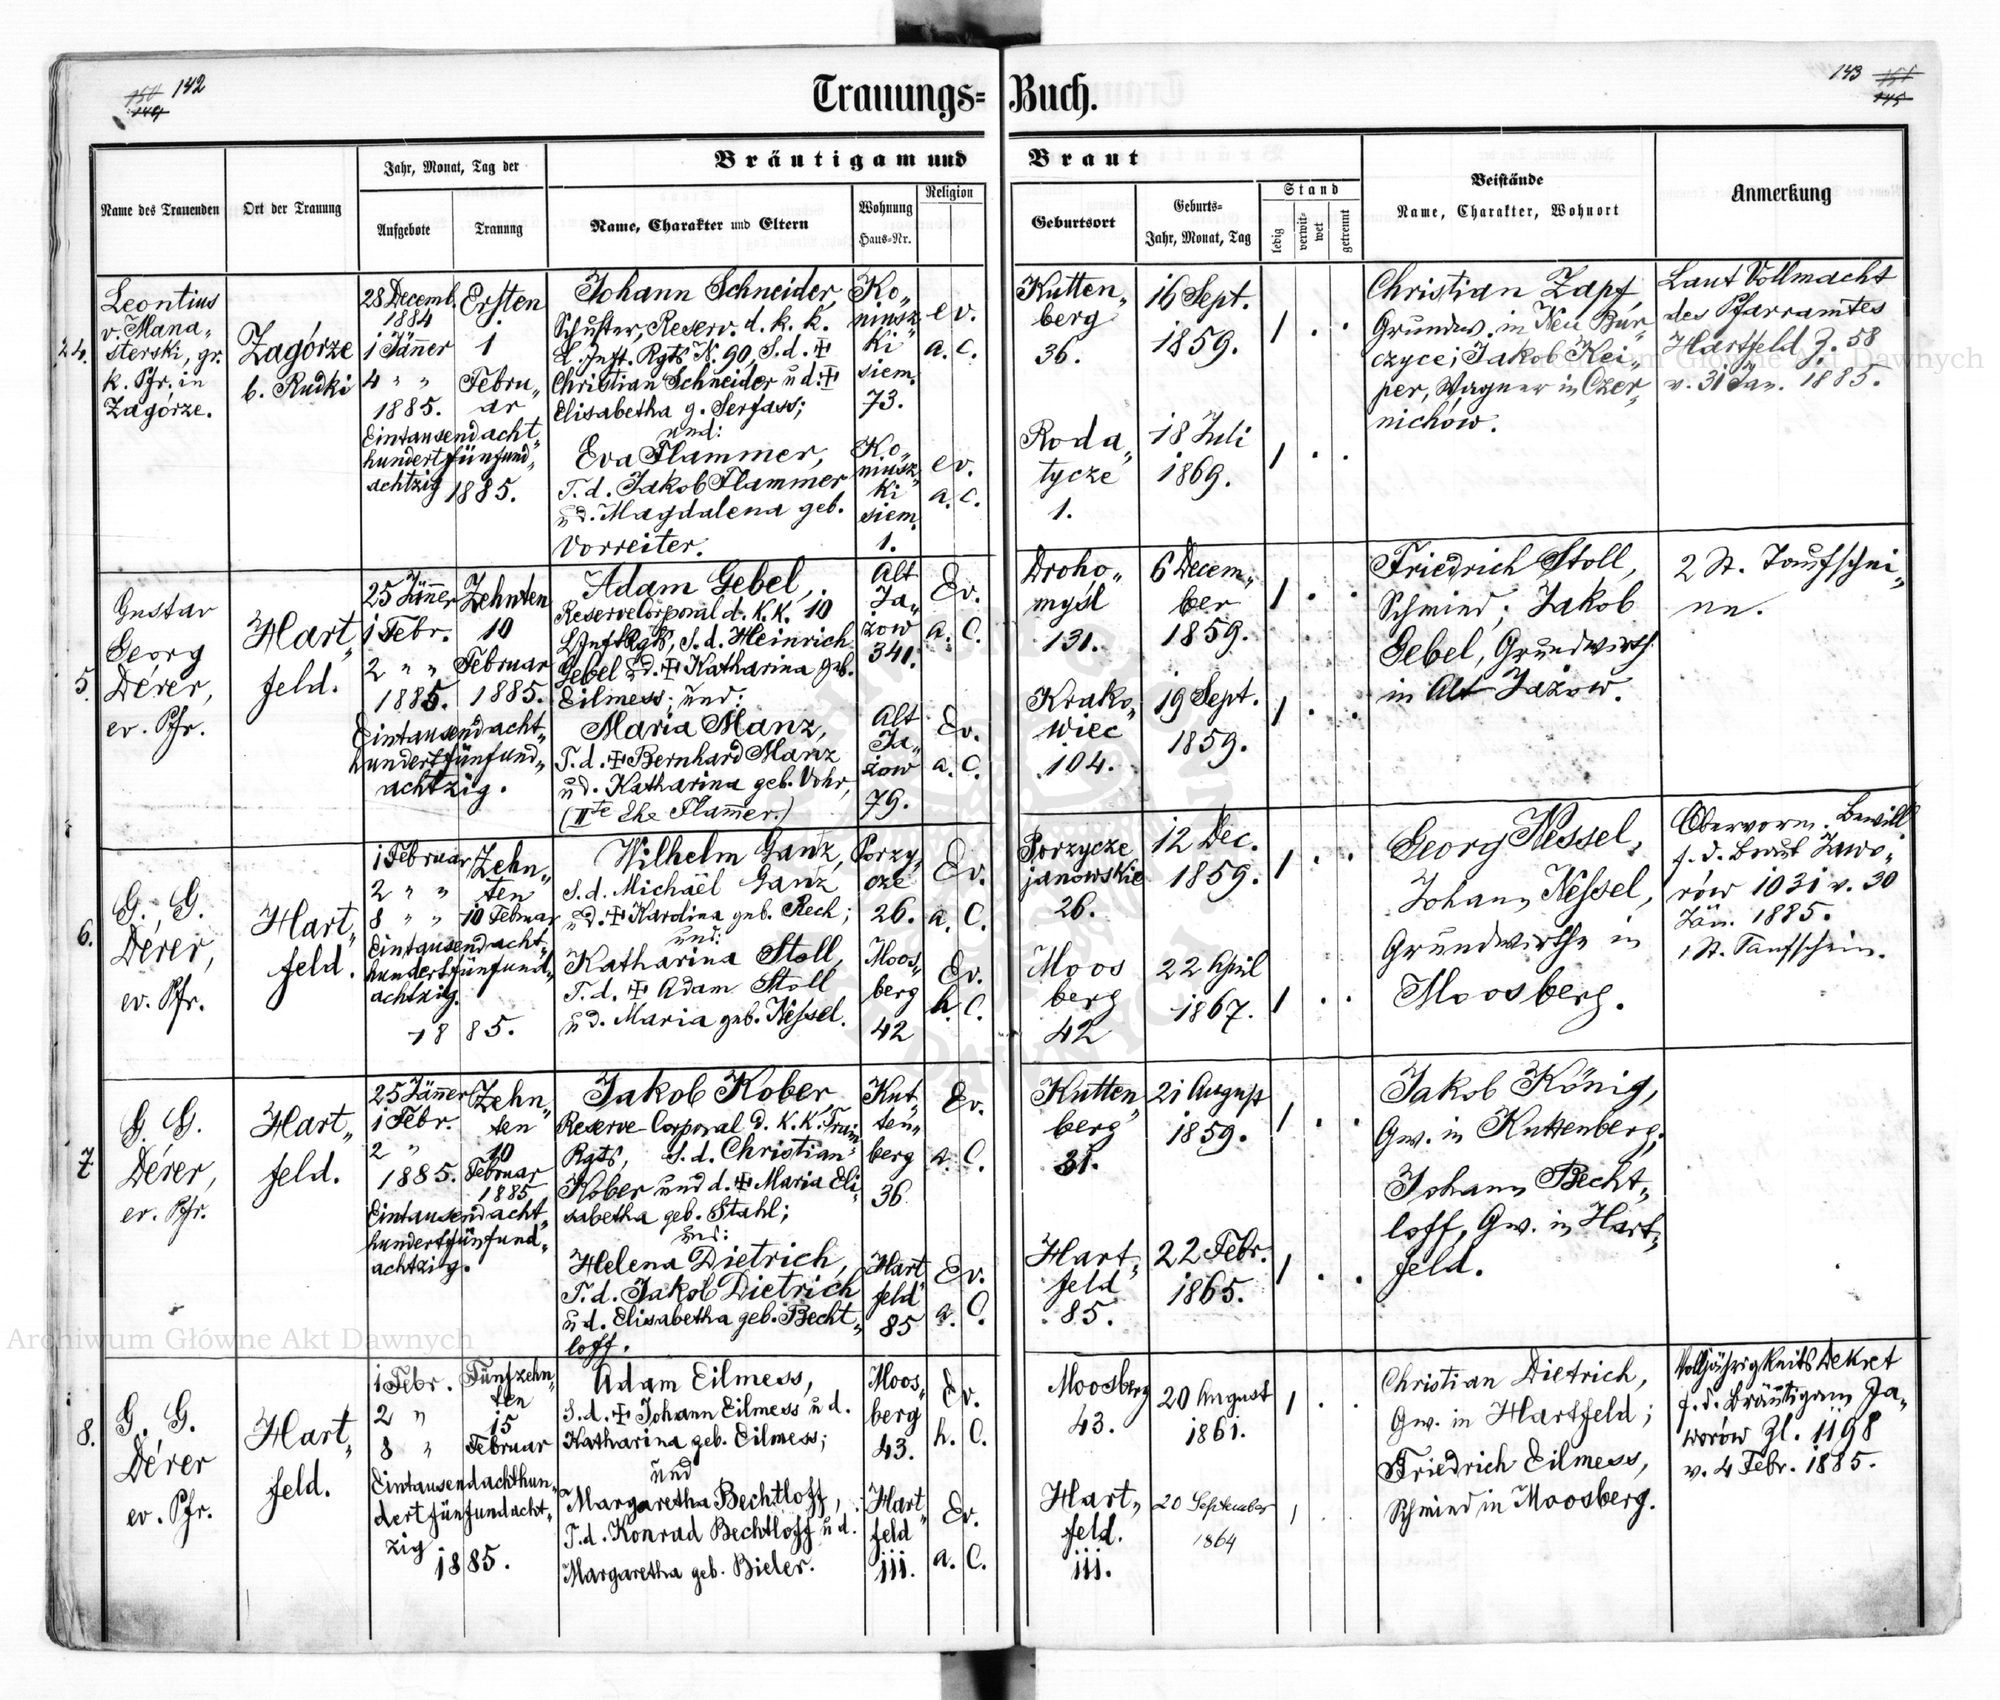 142
150
149
143
151
145
Trauungs=Buch.
Name des Trauenden
Ort der Trauung
Jahr, Monat, Tag der
Aufgebote
Trauung
Bräutigam und Braut
Name, Charakter und Eltern
Wohnung
Haus=Nr.
Religion
Geburtsort
Geburts=
Jahr, Monat, Tag
Stand
ledig
verwit=
wet
getrennt
Beistände
Name, Charakter, Wohnort
Anmerkung
Leontius
v. Mana„
sterski, gr.
k. Pfr. in
Zagórze.
Zagórze
b. Rudki
28 Decemb.
1884
1 Jänner
4 „ „
1885.
Eintausendacht„
hundertfünfund„
achtzig
1885.
Ersten
1
Febru„
ar
Johann Schneider,
Schuster, Reserv. d. k. k.
L. Inft. Rgts N. 90, S. d. ‡
Christian Schneider u d. ‡
Elisabetha g. Serfass;
und:
Eva Flammer,
T. d. Jakob Flammer
ud. Magdalena geb.
Vorreiter.
Ko„
musz
ki
siem.
73.
Ko„
musz
ki
siem.
1.
ev.
a. C.
ev.
a. C.
Kutten„
berg
36.
Roda„
tycze
1.
16 Sept.
1859.
18 Juli
1869.
Christian Zapf,
Grundw. in Neu Bur„
czyce; Jakob Kei„
per, Wagner in Czer„
nichów.
Laut Vollmacht
des Pfarramtes
Hartfeld Z. 58
v. 31 Jän. 1885.
5.
Gustav
Georg
Dérer,
ev. Pfr.
Hart„
feld.
25 Jänner
1 Febr.
2 „ „
1885.
Eintausendacht„
hundertfünfund„
achtzig.
Zehnten
10
Februar
1885.
Adam Gebel,
Reserve Corporal d. K. K. 10
L Inft Rgts, S. d. Heinrich
Gebel ud. ‡ Katharina geb.
Eilmess; und:
Maria Manz,
T. d. ‡ Bernhard Manz
ud. Katharina geb. Vohr,
(IIte Ehe Flamer.)
Alt
Ja„
zow
341.
Alt
Ja„
zow
79.
Ev.
a. C.
Ev.
a. C.
Droho„
mysl
131.
Krako„
wiec
104.
6 Decem„
ber
1859.
19 Sept.
1859.
Friedrich Stoll,
Schmied; Jakob
Gebel, Grundwirth
in Alt Jazow.
2 St. Taufschei„
ne.
6.
G. G.
Dérer,
ev. Pfr.
Hart„
feld.
1 Februar
2 „ „
8 „ „
Eintausendacht„
hundertfünfund„
achtzig.
1885.
Zehn„
ten
10 Februar
Wilhelm Ganz,
S. d. Michaël Ganz
ud. ‡ Karolina geb. Rech;
und:
Katharina Stoll,
T. d. ‡ Adam Stoll
ud. Maria geb. Nessel.
Porzy„
cze
26.
Moos„
berg
42
Ev.
a. C.
Ev.
h. C.
Porzycze
janowskie
26.
Moos
berg
42
12 Dec.
1859.
22 April
1867.
Georg Nessel,
Johann Nessel,
Grundwirthe in
Moosberg.
Obervorm. Bewill.
f. d. Braut Jawo„
rów 1031 v. 30
Jän. 1885.
1 St. Taufschein.
7.
G. G.
Dérer,
ev. Pfr.
Hart„
feld.
25 Jänner
1 Febr.
2 „
1885.
Eintausendacht„
hundertfünfund„
achtzig.
Zehn„
ten
10
Februar
1885
Jakob Kober
Reserve Corporal d. K. K. Train
Rgts, S. d. Christian
Kober und d. ‡ Maria Eli„
sabetha geb. Stahl;
und:
Helena Dietrich,
T. d. Jakob Dietrich
ud. Elisabetha geb. Becht„
loff.
Kut„
ten„
berg
36
Hart
feld
85
Ev.
a. C.
Ev.
a. C.
Kutten„
berg
31.
Hart„
feld
85.
21 August
1859.
22 Febr.
1865.
Jakob König,
Gw. in Kuttenberg;
Johann Becht„
loff, Gw. in Hart„
feld.
8.
G. G.
Dérer
ev. Pfr.
Hart„
feld.
1 Febr.
2 „
8 „
Eintausendachthun„
dertfünfundacht„
zig
1885.
Fünfzehn„
ten
15
Februar
Adam Eilmess,
S. d. ‡ Johann Eilmess u d.
Katharina geb. Eilmess;
und
Margaretha Bechtloff,
T. d. Konrad Bechtloff u d.
Margaretha geb. Bieler.
Moos„
berg
43.
Hart„
feld
111.
Ev.
h. C.
Ev.
a. C.
Moosberg
43.
Hart„
feld.
111.
20 August
1861.
20 September
1864
Christian Dietrich,
Gw. in Hartfeld;
Friedrich Eilmess,
Schmied in Moosberg.
Volljährigkeits Dekret
f. d. Bräutigam Ja„
worów Zl. 1198
v. 4 Febr. 1885.
Archiwum Główne Akt Dawnych
Archiwum Główne Akt Dawnych